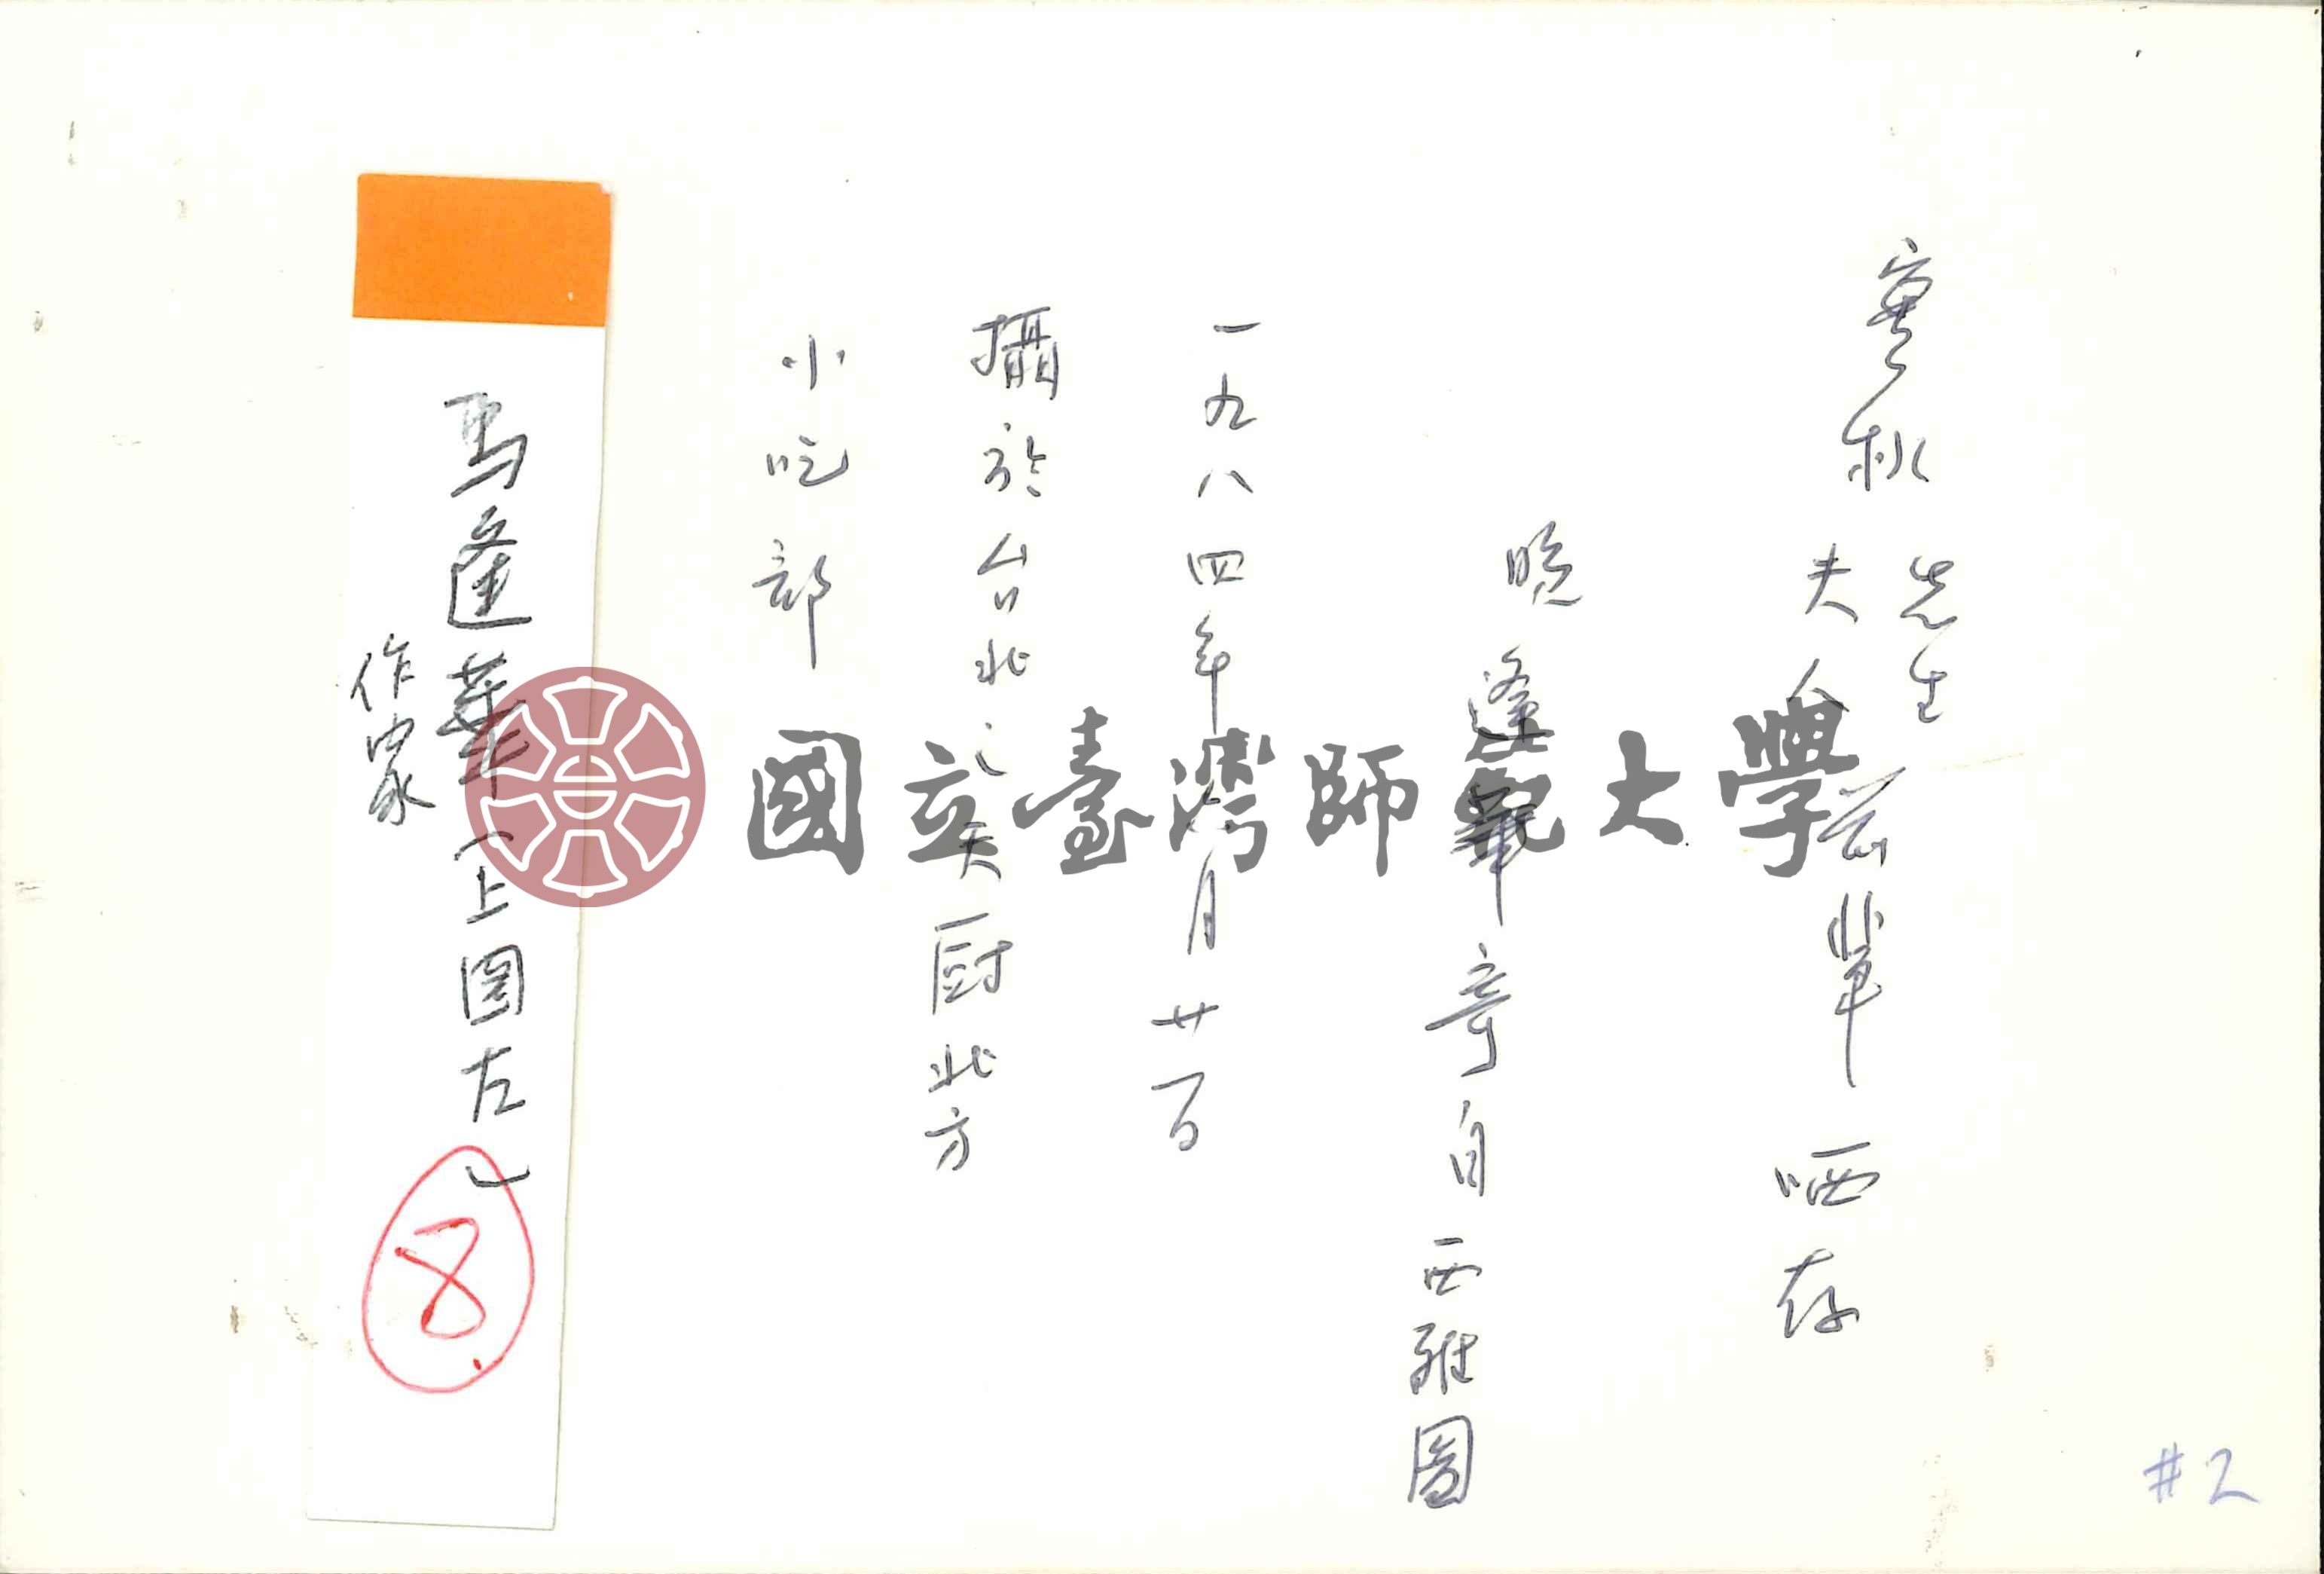 實秋先生
夫人前輩 哂存
晚 逢華 寄自西雅圖
一九八四年月廿一日
攝於台北之天廚北方
小吃部
馬逢華(上圖左)
作家
8
國立臺灣師範大學
#2